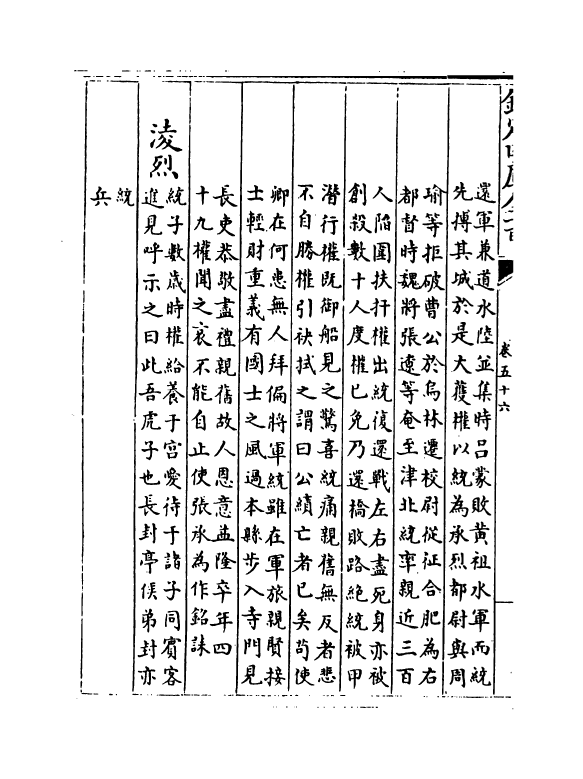 欽定四庫全書
卷五十六
還軍兼道水陸並集時呂蒙敗黃祖水軍而統
先搏其城於是大獲權以統為承烈都尉與周
瑜等拒破曹公於烏林遷校尉從征合肥為右
都督時魏將張遼等奄至津北統率親近三百
人陷圍扶扞權出統復還戰左右盡死身亦被
創殺數十人度權已免乃還橋敗路絶統被甲
潛行權既御船見之驚喜統痛親舊無反者悲
不自勝權引袂拭之謂曰公績亡者已矣苟使
卿在何患無人拜偏將軍統雖在軍旅親賢接
士輕財重義有國士之風過本縣步入寺門見
長吏恭敬盡禮親舊故人恩意益隆卒年四
十九權聞之哀不能自止使張承為作銘誄
淩烈
統子數歲時權給養于宮愛待于諸子同賓客
進見呼示之曰此吾虎子也長封亭侯弟封亦
統
兵